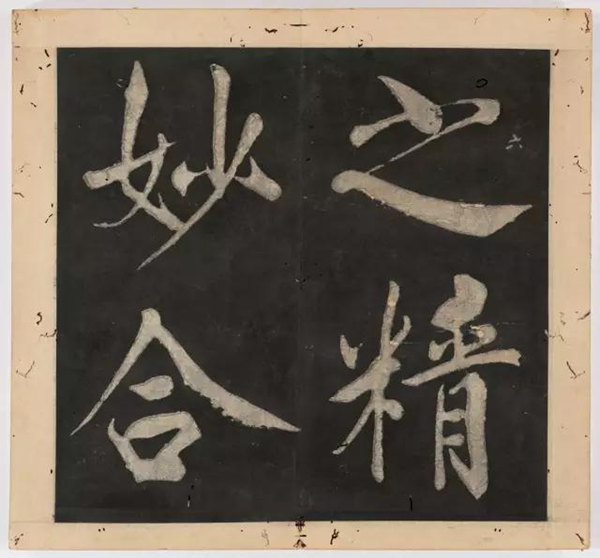 之精
妙合